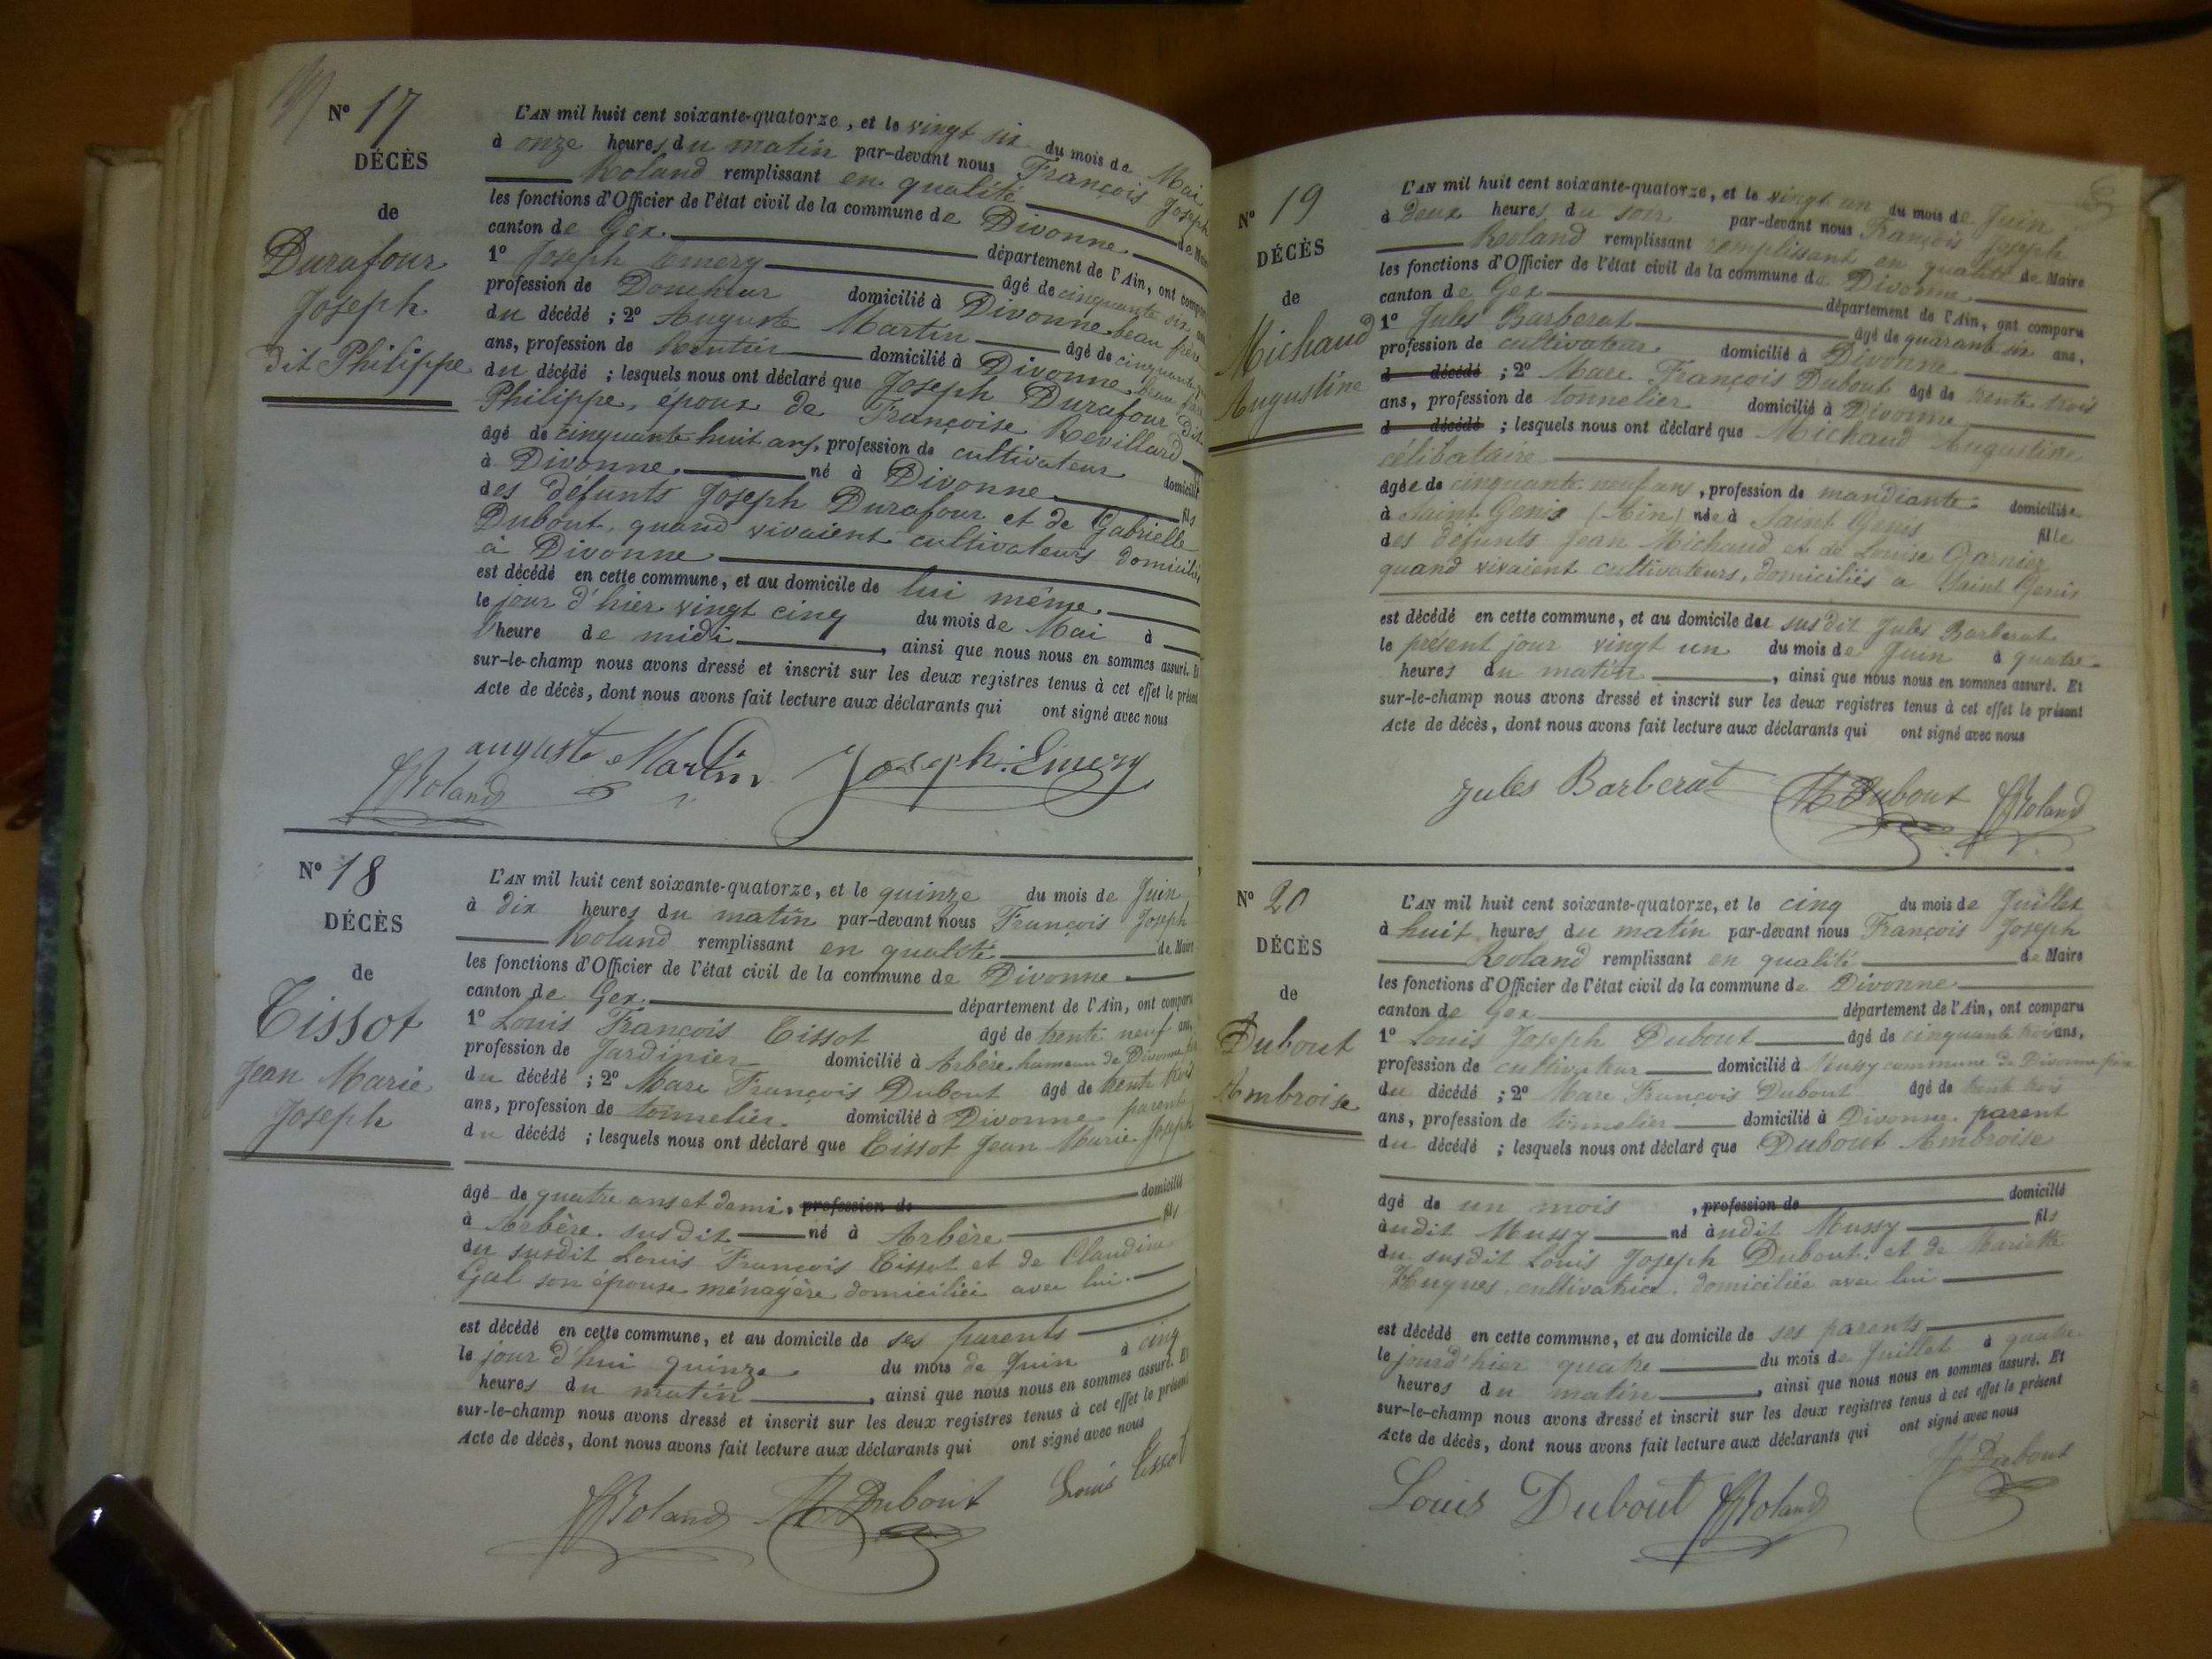 N° 17
DÉCÈS
de
Durafour
Joseph
dit Philippe
L'AN mil huit cent soixante-quatorze, et le vingt six du mois de Mai
à onze heures du matin par-devant nous François Joseph
Roland remplissant en qualité de Maire
les fonctions d'Officier de l'état civil de la commune de Divonne
canton de Gex département de l'Ain, ont comparu
1° Joseph Emery âgé de cinquante six ans
profession de domicilié à Divonne beau frère
du décédé ; 2° Auguste Martin âgé de cinquante
ans, profession de Rentier domicilié à Divonne beau frère
du décédé ; lesquels nous ont déclaré que Joseph Durafour dit
Philippe, époux de Françoise Revillard
âgé de cinquante huit ans, profession de cultivateur domicilié
à Divonne né à Divonne fils
des défunts Joseph Durafour et de Gabrielle
Dubout, quand vivaient cultivateurs domiciliés
à Divonne
est décédé en cette commune, et au domicile de lui même
le jour d'hier vingt cinq du mois de Mai à
l'heure de midi, ainsi que nous nous en sommes assuré. Et
sur-le-champ nous avons dressé et inscrit sur les deux registres tenus à cet effet le présent
Acte de décès, dont nous avons fait lecture aux déclarants qui ont signé avec nous
auguste Martin Joseph Emery
Roland
N° 18
DÉCÈS
de
Tissot
Jean Marie
Joseph
L'AN mil huit cent soixante-quatorze, et le quinze du mois de Juin
à dix heures du matin par-devant nous François Joseph
Roland remplissant en qualité de Maire
les fonctions d'Officier de l'état civil de la commune de Divonne
canton de Gex département de l'Ain, ont comparu
1° Louis François Tissot âgé de trente neuf ans,
profession de Jardinier domicilié à Arbère hameau de Divonne
du décédé ; 2° Marc François Dubout âgé de trente trois
ans, profession de tonnelier domicilié à Divonne parent
du décédé ; lesquels nous ont déclaré que Tissot Jean Marie Joseph
âgé de quatre ans et demi, profession de domicilié
à Arbère susdit né à Arbère fils
du susdit Louis François Tissot et de Claudine
son épouse ménagère domiciliée avec lui
est décédé en cette commune, et au domicile de ses parents
le jour d'hui quinze du mois de Juin à cinq
heures du matin, ainsi que nous nous en sommes assuré. Et
sur-le-champ nous avons dressé et inscrit sur les deux registres tenus à cet effet le présent
Acte de décès, dont nous avons fait lecture aux déclarants qui ont signé avec nous
Roland M Dubout Louis Tissot
N° 19
DÉCÈS
de
Michaud
Augustine
L'AN mil huit cent soixante-quatorze, et le vingt un du mois de Juin
à deux heures du soir par-devant nous François Joseph
Roland remplissant remplissant en qualité de Maire
les fonctions d'Officier de l'état civil de la commune de Divonne
canton de Gex département de l'Ain, ont comparu
1° Jules Barberat âgé de quarante six ans,
profession de cultivateur domicilié à Divonne
d décédé ; 2° Marc François Dubout âgé de trente trois
ans, profession de tonnelier domicilié à Divonne
d décédé ; lesquels nous ont déclaré que Michaud Augustine
célibataire
âgée de cinquante neuf ans, profession de mandiante domiciliée
à Saint Genis (Ain) née à Saint Genis fille
des défunts Jean Michaud et de Louise Garnier
quand vivaient cultivateurs, domiciliés a Saint Genis
est décédé en cette commune, et au domicile du susdit Jules Barberat
le présent jour vingt un du mois de Juin à quatre
heures du matin, ainsi que nous nous en sommes assuré. Et
sur-le-champ nous avons dressé et inscrit sur les deux registres tenus à cet effet le présent
Acte de décès, dont nous avons fait lecture aux déclarants qui ont signé avec nous
Jules Barberat M Dubout Roland
N° 20
DÉCÈS
de
Dubout
Ambroise
L'AN mil huit cent soixante-quatorze, et le cinq du mois de Juillet
à huit heures du matin par-devant nous François Joseph
Roland remplissant en qualité de Maire
les fonctions d'Officier de l'état civil de la commune de Divonne
canton de Gex département de l'Ain, ont comparu
1° Louis Joseph Dubout âgé de cinquante trois ans,
profession de cultivateur domicilié à Mussy commune de Divonne
du décédé ; 2° Marc François Dubout âgé de trente trois
ans, profession de tonnelier domicilié à Divonne parent
du décédé ; lesquels nous ont déclaré que Dubout Ambroise
âgé de un mois, profession de domicilié
àudit Mussy né àudit Mussy fils
du susdit Louis Joseph Dubout et de Mariette
Hugues, cultivatrice, domiciliée avec lui
est décédé en cette commune, et au domicile de ses parents
le jourd'hier quatre du mois de Juillet à quatre
heures du matin, ainsi que nous nous en sommes assuré. Et
sur-le-champ nous avons dressé et inscrit sur les deux registres tenus à cet effet le présent
Acte de décès, dont nous avons fait lecture aux déclarants qui ont signé avec nous
Louis Dubout Roland M Dubout